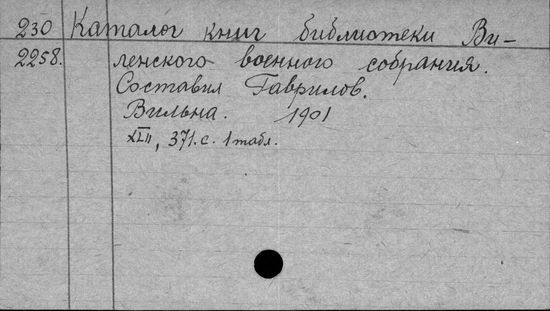 230 Каталог книг библиотеки Ви-
2258. ленского военного собрания.
Составил Гаврилов.
Вильна. 1901
XLII, 371.с. 1 табл.